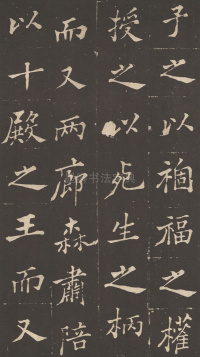 子之以禍福之權
授之以死生之柄
而又两廊森肅陪
以十殿之王而又